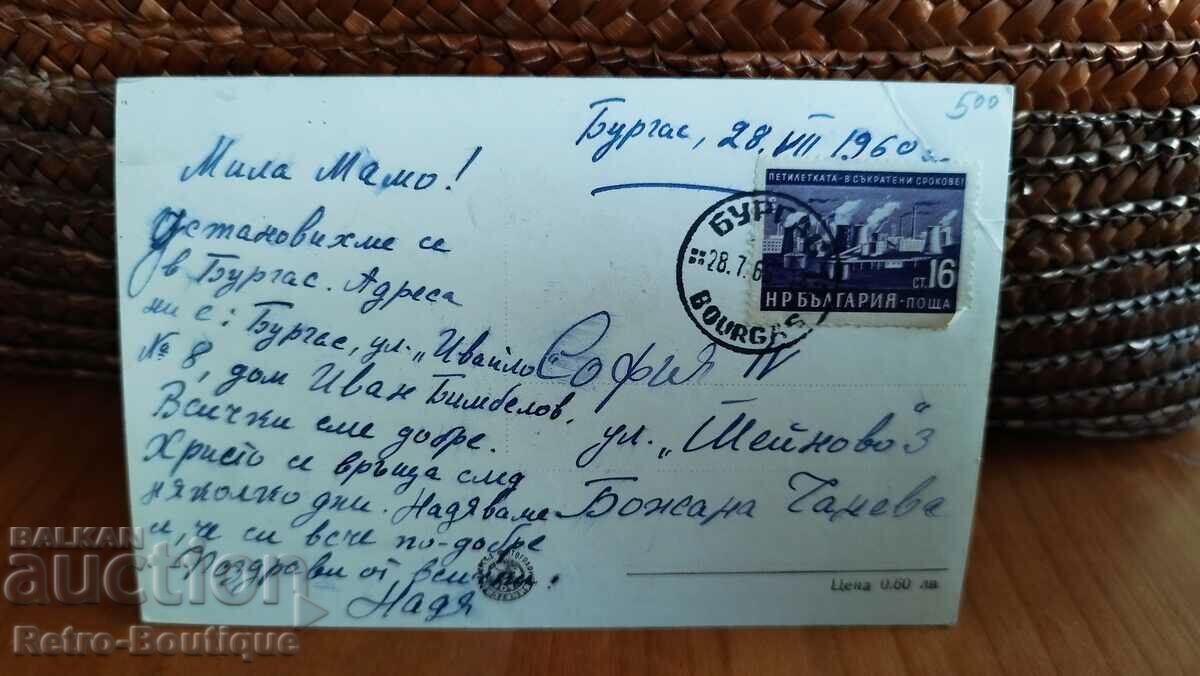 500
Бургас, 28. VII 1960
Мила Мамо!
Установихме се
в Бургас. Адреса
ни е: Бургас, ул. „Ивайло“
№ 8, дом Иван Бимбелов.
Всички сме добре.
Христо се връща след
няколко дни. Надяваме
се, че си вече по-добре
Поздрави от всички!
Надя
ПЕТИЛЕТКАТА - В СЪКРАТЕНИ СРОКОВЕ!
СТ. 16
НР БЪЛГАРИЯ - ПОЩА
БУРГАС
28.7.6
BOURGAS
София IV
ул. „Шейново“ 3
Божана Чанева
Цена 0.60 лв.
BALKAN
auction
Retro-Boutique